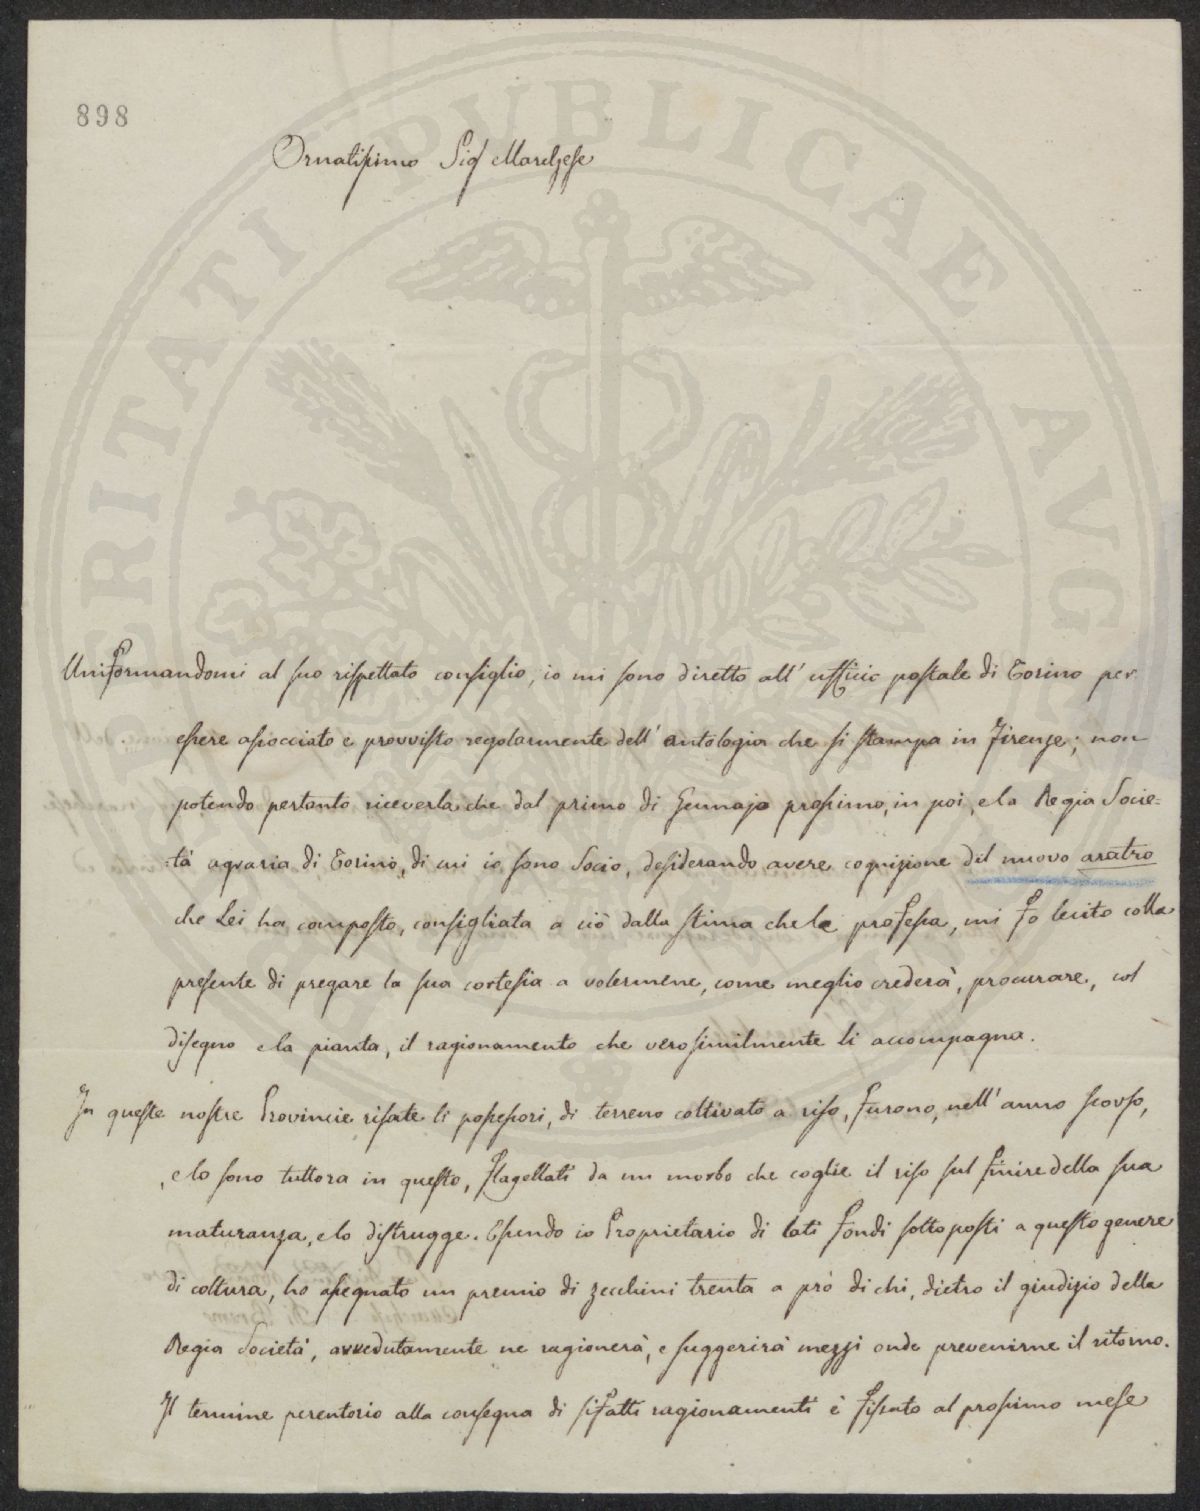 898
Ornatissimo Sig Marchese
Uniformandomi al suo rispettato consiglio, io mi sono diretto all' ufficio postale di Torino per
essere associato e provvisto regolarmente dell' antologia che si stampa in Firenze; non
potendo pertanto riceverla che dal primo di Gennajo prossimo, in poi, e la Regia Socie=
=tà agraria di Torino, di cui io sono Socio, desiderando avere cognizione del nuovo aratro
che Lei ha composto, consigliata a ciò dalla stima che le professa, mi fo lecito colla
presente di pregare la sua cortesia a volermene, come meglio crederà, procurare, col
disegno e la pianta, il ragionamento che verosimilmente li accompagna.
In queste nostre Provincie risate li possessori, di terreno coltivato a riso, furono, nell' anno scorso,
e lo sono tuttora in questo, flagellati da un morbo che coglie il riso sul finire della sua
maturanza, e lo distrugge. Essendo io Proprietario di lati fondi sottoposti a questo genere
di coltura, ho assegnato un premio di zecchini trenta a prò di chi, dietro il giudizio della
Regia Società, avvedutamente ne ragionerà, e suggerirà mezzi onde prevenirne il ritorno.
Il termine perentorio alla consegna di sifatti ragionamenti è fissato al prossimo mese
PUBLICAE